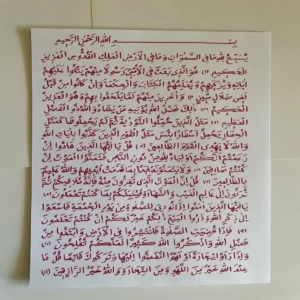 بِسْمِ اللهِ الرَّحْمٰنِ الرَّحِيمِ
يُسَبِّحُ لِلّٰهِ مَا فِي السَّمٰوَاتِ وَمَا فِي الْأَرْضِ الْمَلِكِ الْقُدُّوسِ الْعَزِيزِ
الْحَكِيمِ (١) هُوَ الَّذِي بَعَثَ فِي الْأُمِّيِّينَ رَسُولًا مِنْهُمْ يَتْلُوا عَلَيْهِمْ
آيَاتِهِ وَيُزَكِّيهِمْ وَيُعَلِّمُهُمُ الْكِتَابَ وَالْحِكْمَةَ وَإِنْ كَانُوا مِنْ قَبْلُ
لَفِي ضَلَالٍ مُبِينٍ (٢) وَآخَرِينَ مِنْهُمْ لَمَّا يَلْحَقُوا بِهِمْ وَهُوَ الْعَزِيزُ
الْحَكِيمُ (٣) ذٰلِكَ فَضْلُ اللهِ يُؤْتِيهِ مَنْ يَشَاءُ وَاللهُ ذُو الْفَضْلِ
الْعَظِيمِ (٤) مَثَلُ الَّذِينَ حُمِّلُوا التَّوْرَاةَ ثُمَّ لَمْ يَحْمِلُوهَا كَمَثَلِ
الْحِمَارِ يَحْمِلُ أَسْفَارًا بِئْسَ مَثَلُ الْقَوْمِ الَّذِينَ كَذَّبُوا بِآيَاتِ اللهِ
وَاللهُ لَا يَهْدِي الْقَوْمَ الظَّالِمِينَ (٥) قُلْ يَا أَيُّهَا الَّذِينَ هَادُوا إِنْ
زَعَمْتُمْ أَنَّكُمْ أَوْلِيَاءُ لِلّٰهِ مِنْ دُونِ النَّاسِ فَتَمَنَّوُا الْمَوْتَ إِنْ
كُنْتُمْ صَادِقِينَ (٦) وَلَا يَتَمَنَّوْنَهُ أَبَدًا بِمَا قَدَّمَتْ أَيْدِيهِمْ وَاللهُ عَلِيمٌ
بِالظَّالِمِينَ (٧) قُلْ إِنَّ الْمَوْتَ الَّذِي تَفِرُّونَ مِنْهُ فَإِنَّهُ مُلَاقِيكُمْ ثُمَّ
تُرَدُّونَ إِلَى عَالِمِ الْغَيْبِ وَالشَّهَادَةِ فَيُنَبِّئُكُمْ بِمَا كُنْتُمْ تَعْمَلُونَ (٨)
يَا أَيُّهَا الَّذِينَ آمَنُوا إِذَا نُودِيَ لِلصَّلَاةِ مِنْ يَوْمِ الْجُمُعَةِ فَاسْعَوْا
إِلَى ذِكْرِ اللهِ وَذَرُوا الْبَيْعَ ذٰلِكُمْ خَيْرٌ لَكُمْ إِنْ كُنْتُمْ تَعْلَمُونَ
(٩) فَإِذَا قُضِيَتِ الصَّلَاةُ فَانْتَشِرُوا فِي الْأَرْضِ وَابْتَغُوا مِنْ
فَضْلِ اللهِ وَاذْكُرُوا اللهَ كَثِيرًا لَعَلَّكُمْ تُفْلِحُونَ (١٠)
وَإِذَا رَأَوْا تِجَارَةً أَوْ لَهْوًا انْفَضُّوا إِلَيْهَا وَتَرَكُوكَ قَائِمًا قُلْ مَا
عِنْدَ اللهِ خَيْرٌ مِنَ اللَّهْوِ وَمِنَ التِّجَارَةِ وَاللهُ خَيْرُ الرَّازِقِينَ (١١)